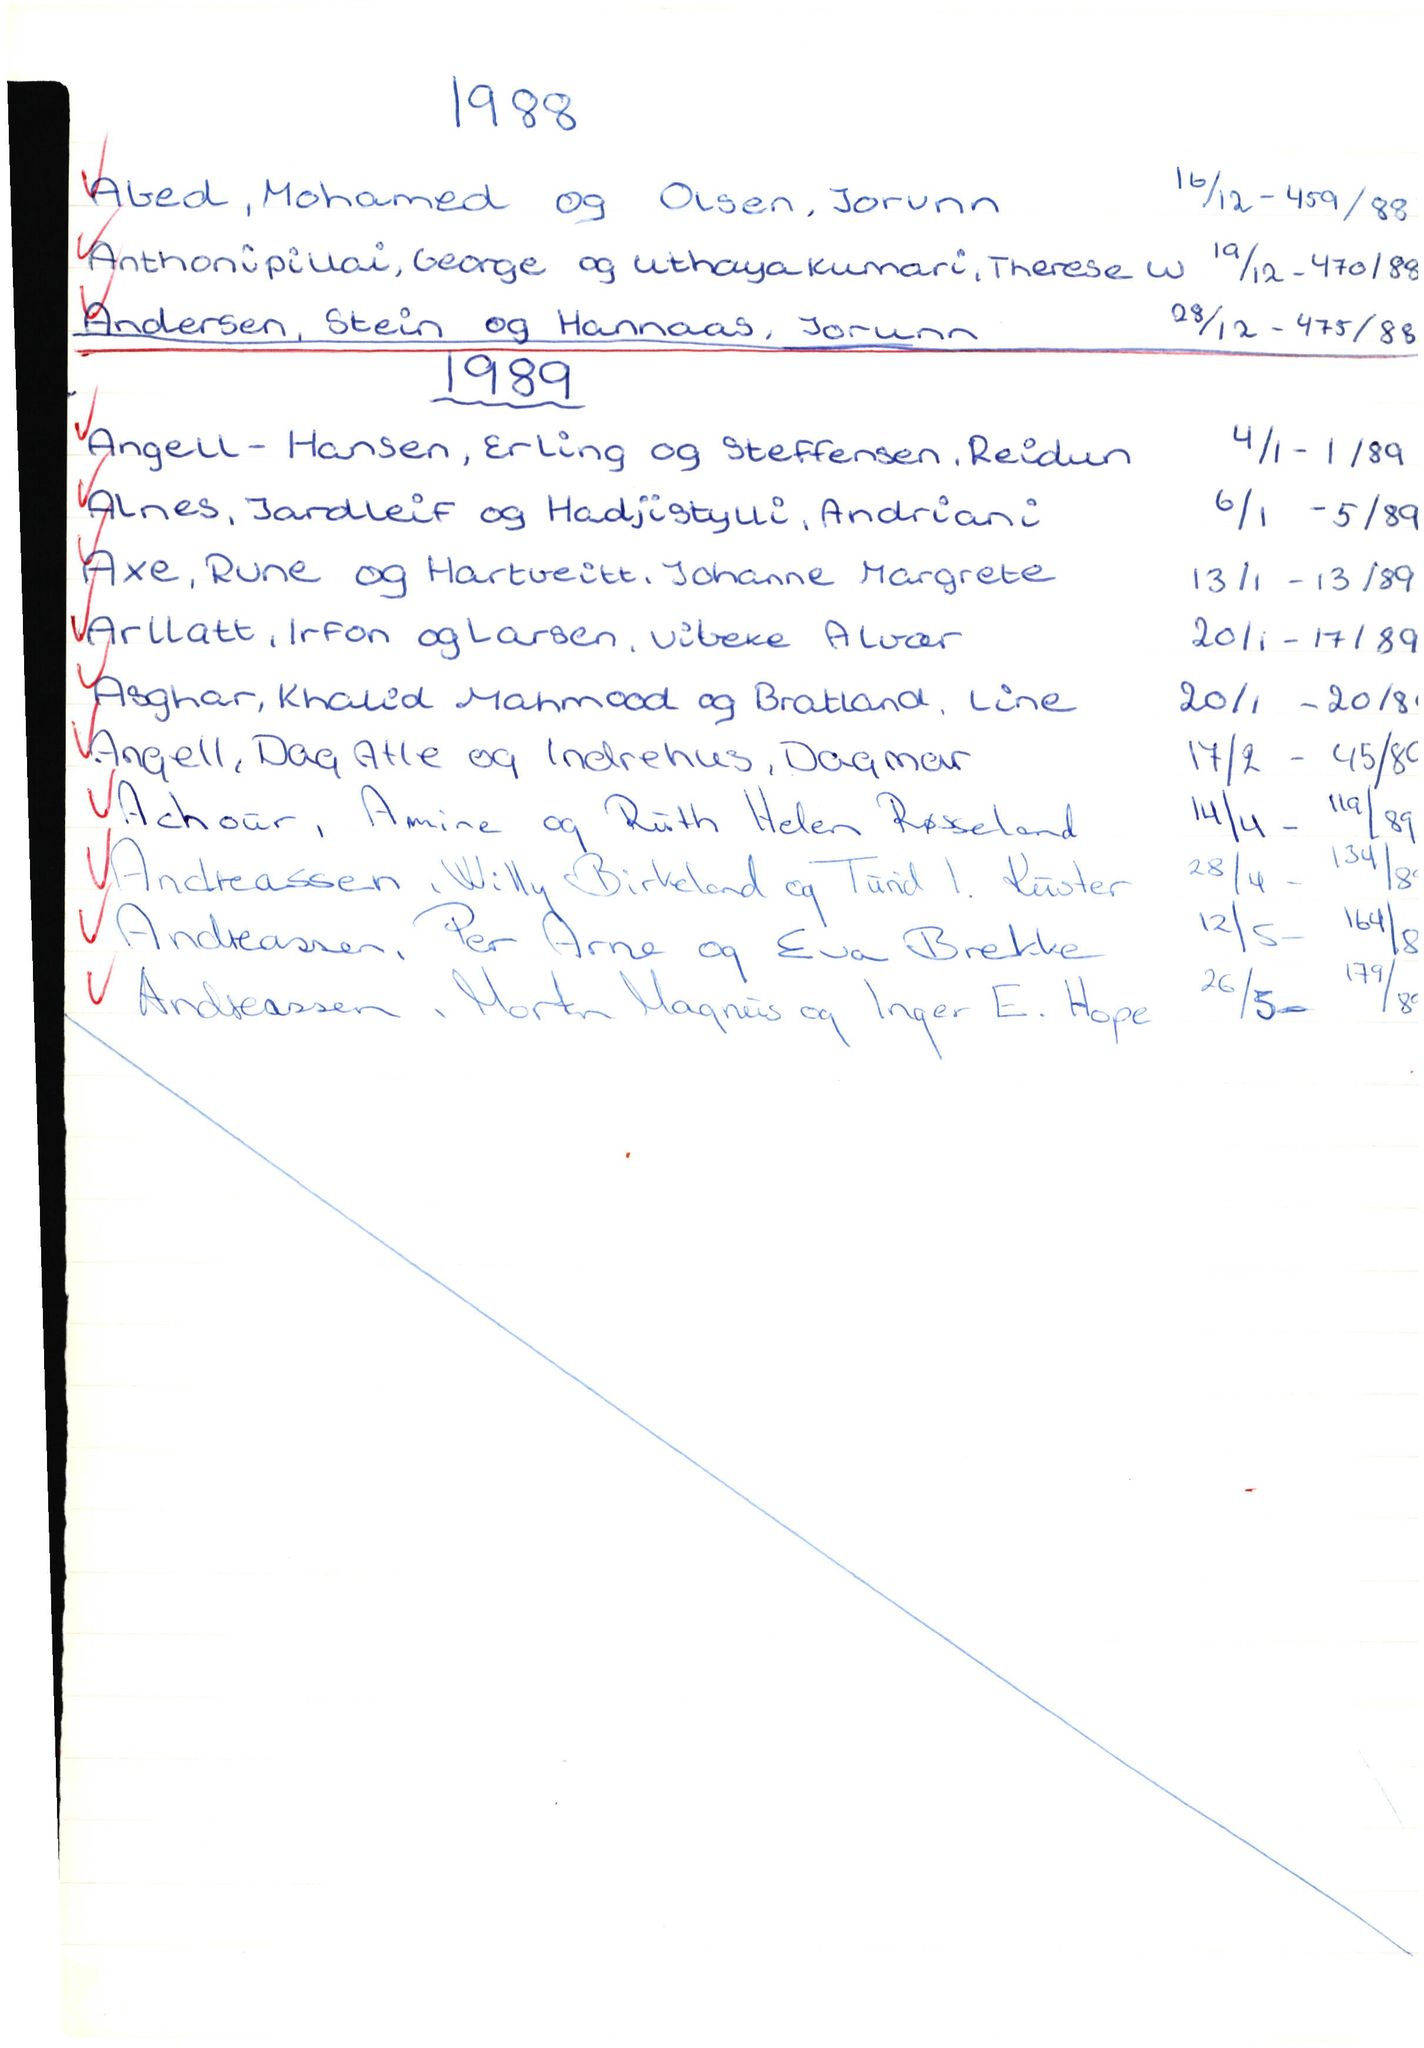 1988
Abed, Mohamed og Olsen, Jorunn 16/12 - 459/88
Anthonipillai, George og Uthayakumari, Therese W 19/12 - 470/88
Andersen, Stein og Hannaas, Jorunn 28/12 - 475/88
1989
Angell - Hansen, Erling og Steffensen, Reidun 4/1 - 1/89
Alnes, Jardleif og Hadjistylli, Andriani 6/1 - 5/89
Axe, Rune og Hartveitt, Johanne Margrete 13/1 - 13/89
Arllatt, Irfon og Larsen, Vibeke Alvær 20/1 - 17/89
Asghar, Khalid Mahmood og Bratland, Line 20/1 - 20/8
Angell, Dag Atle og Indrehus, Dagmar 17/2 - 45/8
Achour, Amine og Ruth Helen Røsseland 14/4 - 119/89
Andreassen, Willy Birkeland og Turid I. Küster 28/4 - 134/8
Andreassen, Per Arne og Eva Brekke 12/5 - 164/8
Andreassen, Morten Magnus og Inger E. Hope 26/5 - 179/8